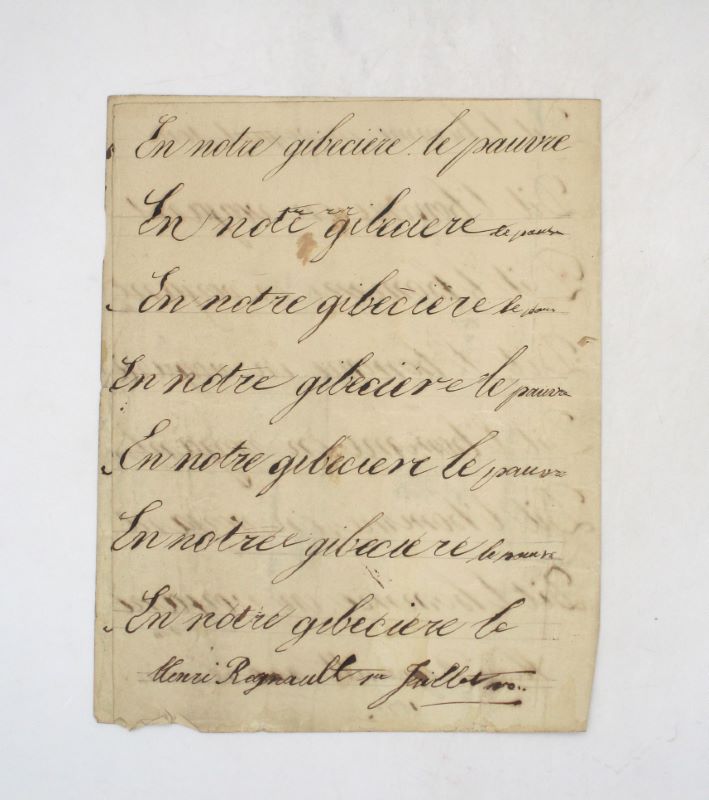 En notre gibecière le pauvre
En notre gibeciere le pauvre
En notre gibecière le pauv
En notre gibeciere le pauvre
En notre gibeciere le pauvre
En notree gibeciere le pauvre
En notre gibeciere le
Henri Regnault Juillet